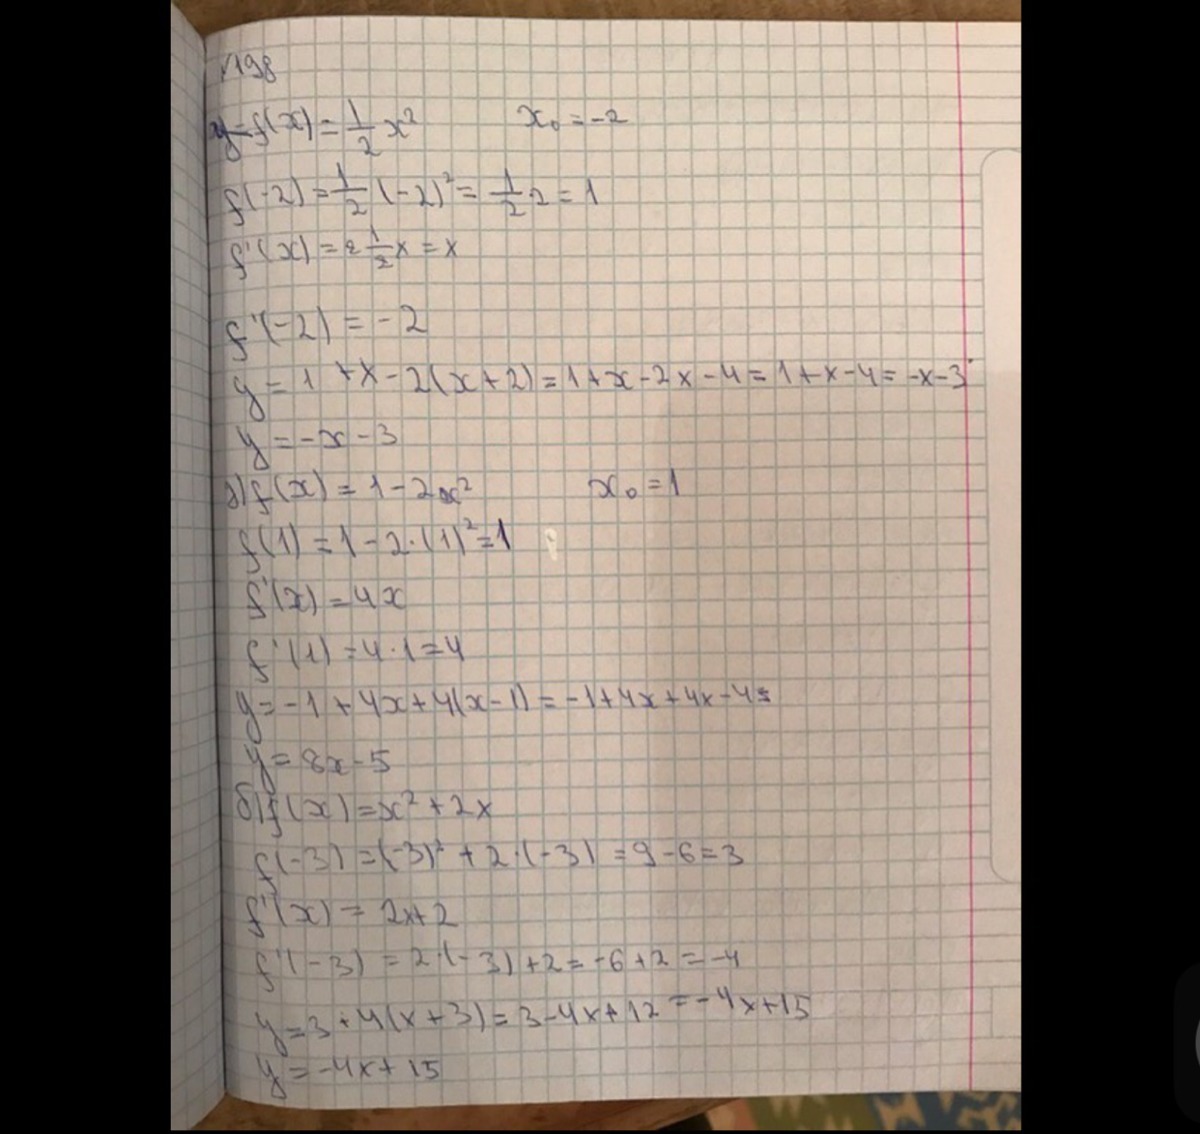 √198
y=f(x) = 1/2 x² x₀ = -2
f(-2) = 1/2 (-2)² = 1/2 2 = 1
f'(x) = 2 1/2 x = x
f'(-2) = -2
y = 1 + x - 2(x+2) = 1+x-2x-4 = 1+x-4 = -x-3
y = -x - 3
д) f(x) = 1 - 2x² x₀ = 1
f(1) = 1 - 2·(1)² = 1
f'(x) = 4x
f'(1) = 4·1 = 4
y = -1 + 4x + 4(x-1) = -1+4x+4x-4=
y = 8x - 5
б) f(x) = x² + 2x
f(-3) = (-3)² + 2·(-3) = 9 - 6 = 3
f'(x) = 2x+2
f'(-3) = 2·(-3)+2 = -6+2 = -4
y = 3 + 4(x+3) = 3-4x+12 = -4x+15
y = -4x + 15